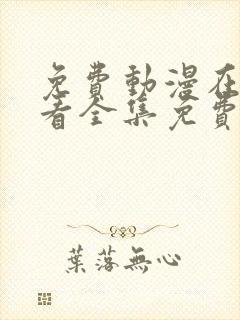 免費動漫在
看全集免費
葉落無心